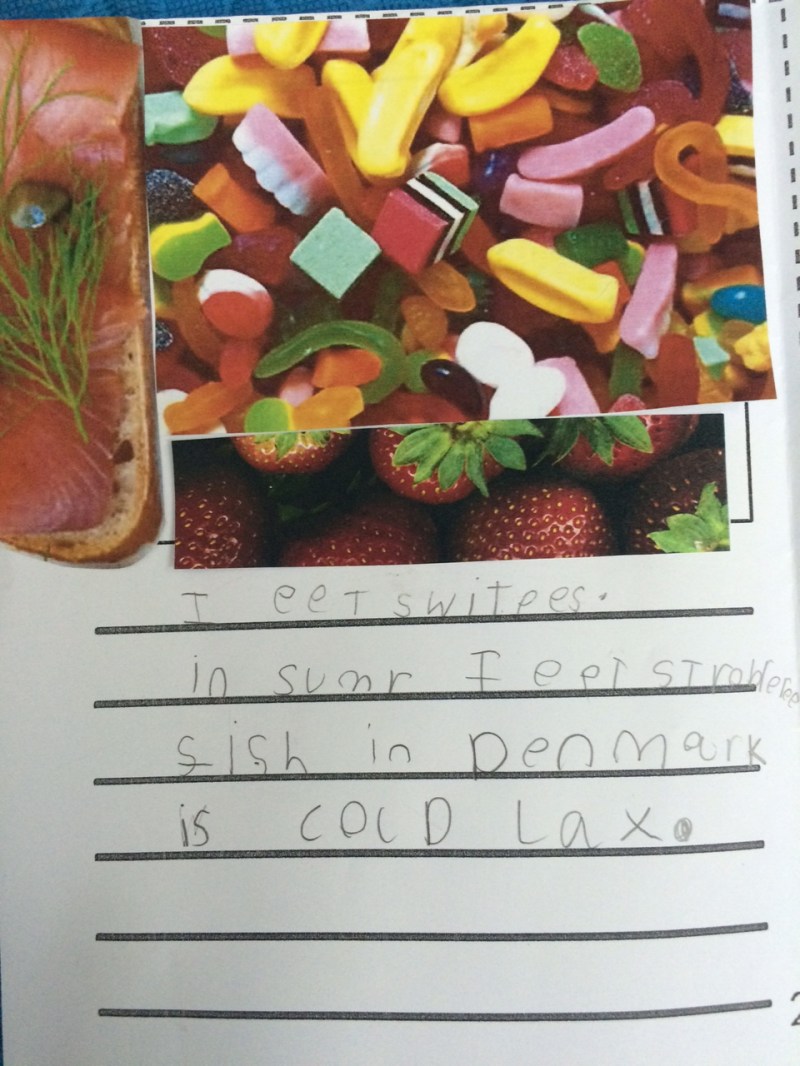 I eet switees.
in sumr I eet stroberee
fish in Denmark
is COLD Lax.
2